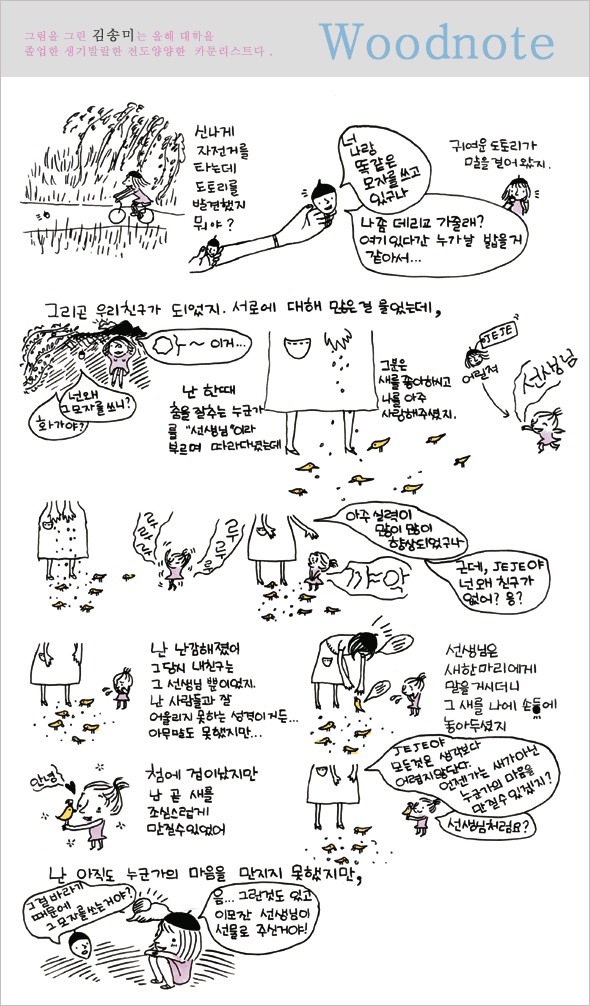 그림을 그린 김송미는 올해 대학을
졸업한 생기발랄한 전도양양한 카툰리스트다.
Woodnote
신나게
자전거를
타는데
도토리를
발견했지
뭐야?
넌
나랑
똑같은
모자를 쓰고
있구나
귀여운 도토리가
말을 걸어 왔지.
나좀 데리고 가줄래?
여기 있다간 누가 날 밟을거
같아서...
그리곤 우리친구가 되었지. 서로에 대해 많은걸 물었는데,
이거...
넌 왜
그 모자를 쓰니?
화가야?
난 한때
춤을 잘추는 누군가
를 "선생님"이라
부르며 따라다녔는데
그분은
새를 좋아하시고
나를 아주
사랑해주셨지.
JEJE
어릴적
선생님
랄라라
루루루
아주 실력이
많이 많이
향상되었구나
까~악
근데, JEJE야
넌 왜 친구가
없어? 응?
난 난감해졌어
그당시 내친구는
그 선생님 뿐이었지.
난 사람들과 잘
어울리지 못하는 성격이거든...
아무말도 못했지만...
선생님은
새한마리에게
말을 거시더니
그 새를 나에 손등에
놓아두셨지
안녕?
첨에 겁이났지만
난 곧 새를
조심스럽게
만질수있었어
JEJE야
모든것은 생각보다
어렵지않단다.
언젠가는 새가아닌
누군가의 마음을
만질수 있겠지?
선생님처럼요?
난 아직도 누군가의 마음을 만지지 못했지만,
그걸 바라기
때문에
그 모자를 쓰는거야?
음... 그런것도 있고
이모잔 선생님이
선물로 주신거야!